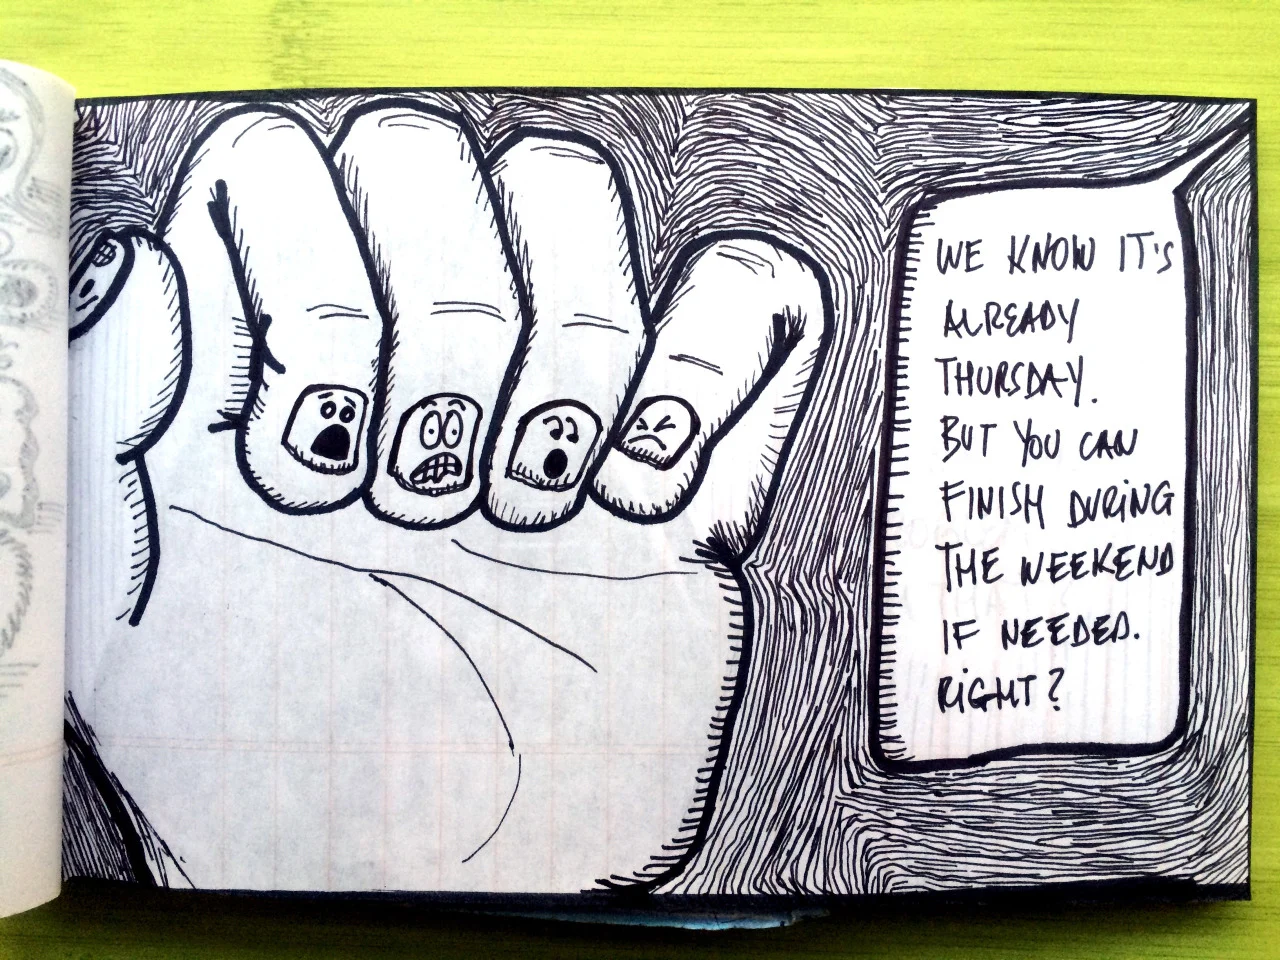 WE KNOW IT'S
ALREADY
THURSDAY.
BUT YOU CAN
FINISH DURING
THE WEEKEND
IF NEEDED.
RIGHT?